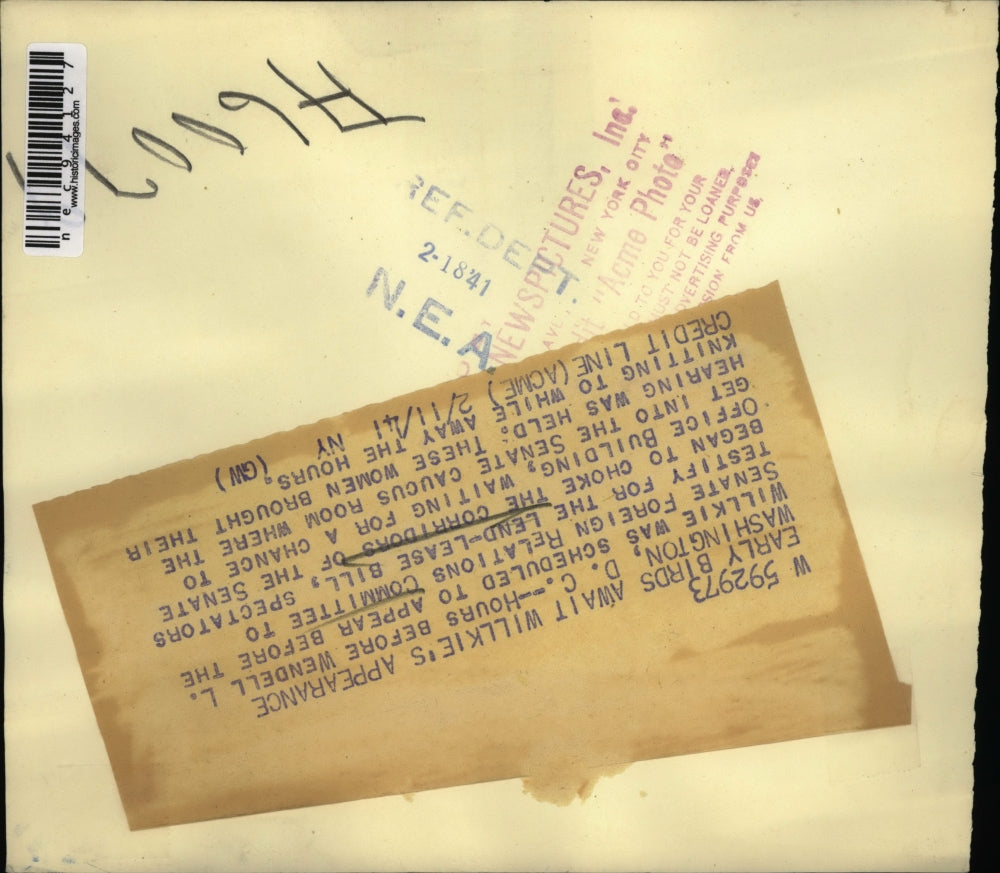 nec94127
www.historicimages.com
REF. DEPT.
2-18'41
N.E.A.
NEWSPICTURES, Inc.
AVE. NEW YORK CITY
"Acme Photo"
D TO YOU FOR YOUR
MUST NOT BE LOANED,
ADVERTISING PURPOSES
SION FROM US.
W 592973
EARLY BIRDS AWAIT WILLKIE'S APPEARANCE
WASHINGTON, D. C.--HOURS BEFORE WENDELL L.
WILLKIE WAS SCHEDULED TO APPEAR BEFORE THE
SENATE FOREIGN RELATIONS COMMITTEE TO
TESTIFY FOR THE LEND-LEASE BILL, SPECTATORS
BEGAN TO CHOKE THE CORRIDORS OF THE SENATE
OFFICE BUILDING, WAITING FOR A CHANCE TO
GET INTO THE SENATE CAUCUS ROOM WHERE THE
HEARING WAS HELD. THESE WOMEN BROUGHT THEIR
KNITTING TO WHILE AWAY THE HOURS.
CREDIT LINE (ACME) 2/11/41 NY (GW)